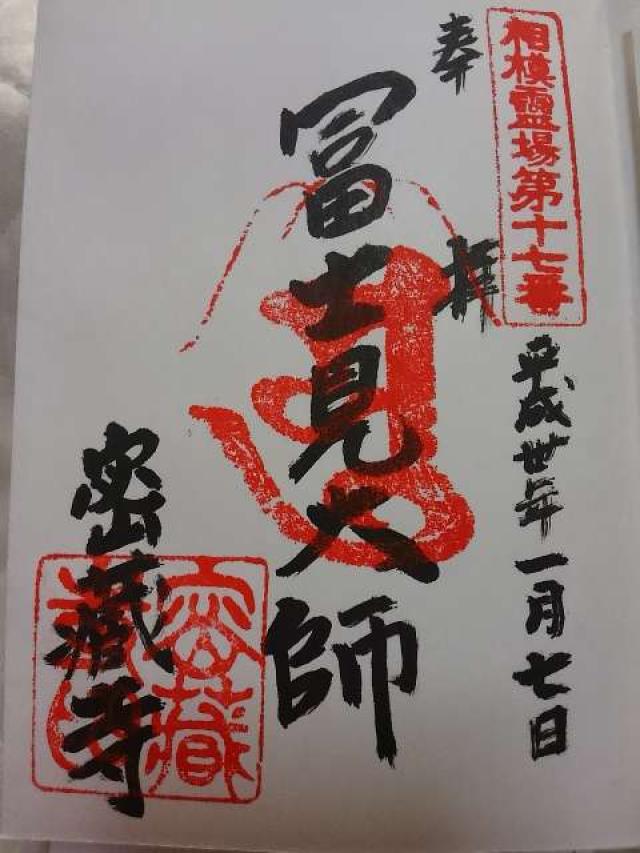 相模霊場第十七番
奉拝
平成卅年一月七日
冨士見大師
密蔵寺